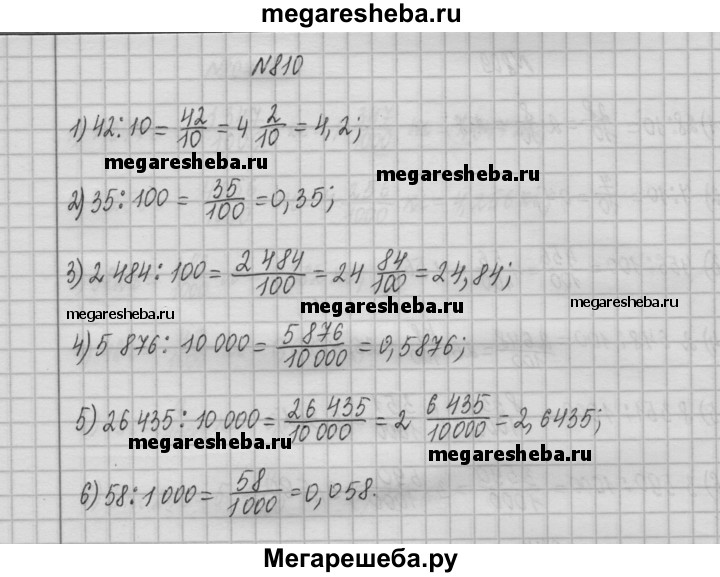 megaresheba.ru
№810
1) 42 : 10 = 42/10 = 4 2/10 = 4,2;
megaresheba.ru
megaresheba.ru
2) 35 : 100 = 35/100 = 0,35;
3) 2 484 : 100 = 2 484/100 = 24 84/100 = 24,84;
megaresheba.ru
megaresheba.ru
megaresheba.ru
4) 5 876 : 10 000 = 5 876/10 000 = 0,5876;
5) 26 435 : 10 000 = 26 435/10 000 = 2 6 435/10000 = 2,6435;
megaresheba.ru
megaresheba.ru
6) 58 : 1 000 = 58/1000 = 0,058.
Мегарешеба.ру